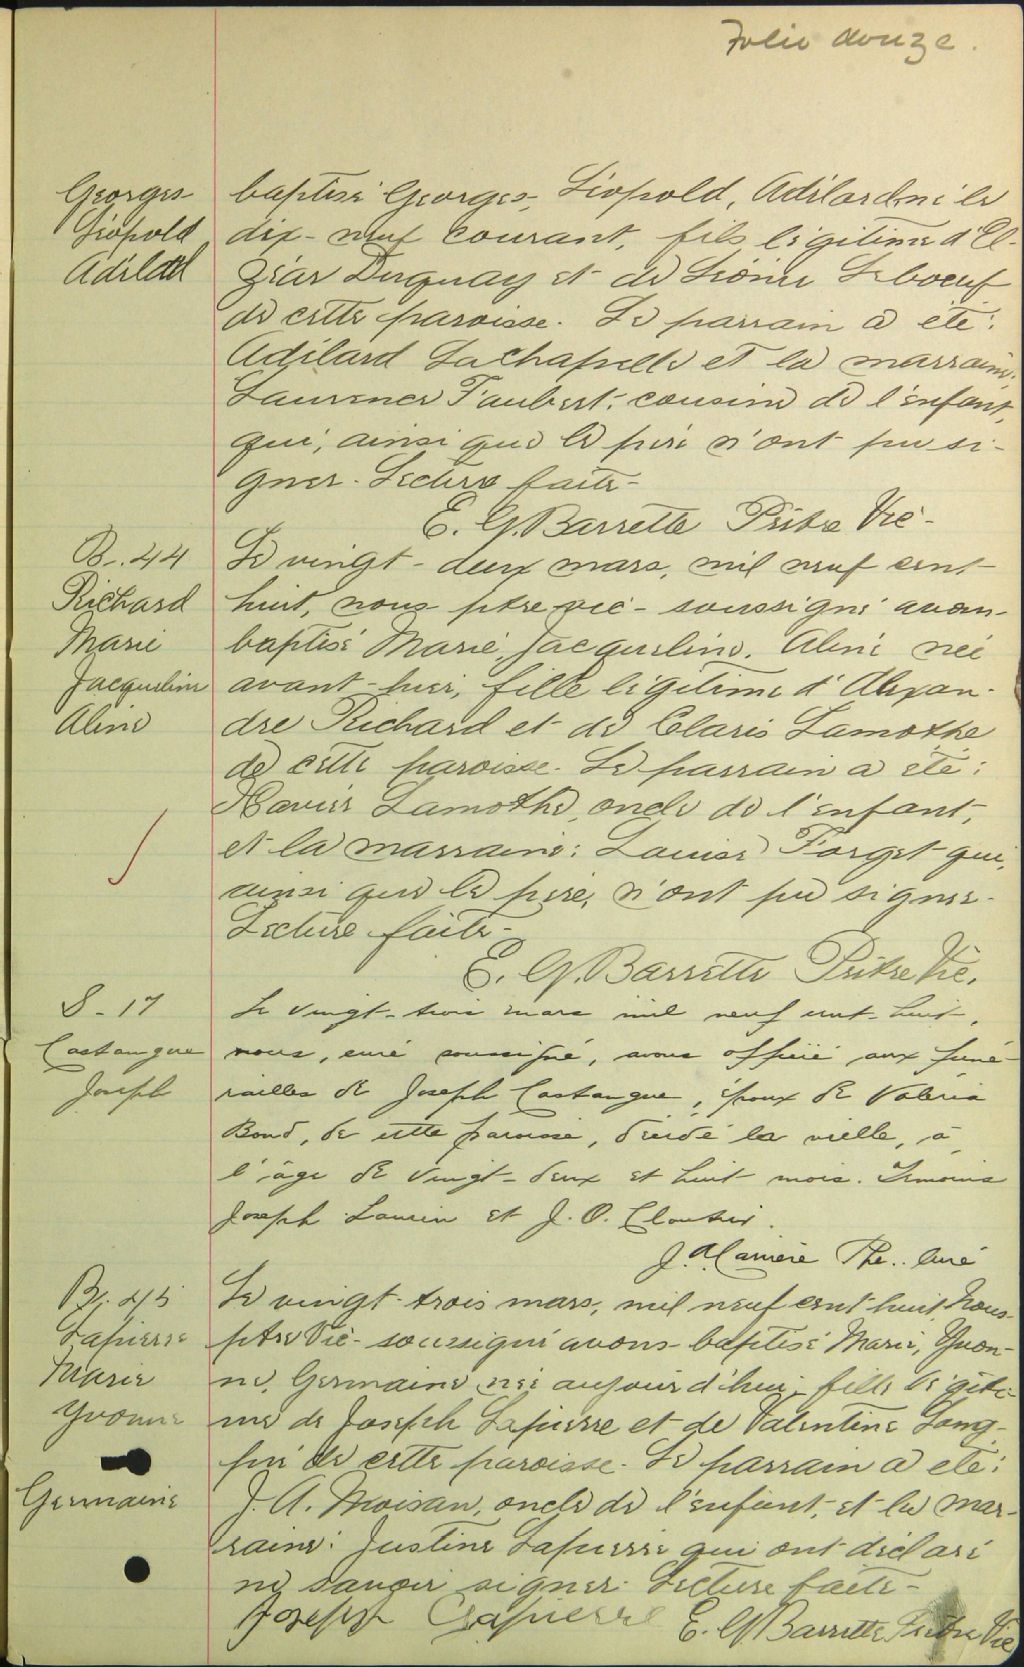 Folio douze.
Georges baptisé Georges, Léopold, Adélard né le
Léopold dix-neuf courant, fils légitime d'El-
Adélard zéar Duquay et de Léonie Leboeuf
de cette paroisse. Le parrain a été:
Adélard Lachapelle et la marraine:
Laurence Faubert: cousine de l'enfant,
qui, ainsi que le père n'ont pu si-
gner. Lecture faite-
E. G. Barrette Prêtre Vic-
B-. 44 Le vingt-deux mars, mil neuf cent
Richard huit, nous ptre vic- soussigné avons-
Marie baptisé Marie, Jacqueline, Aline née
Jacqueline avant-hier, fille légitime d'Alexan-
Aline dre Richard et de Claris Lamothe
de cette paroisse. Le parrain a été:
Xavier Lamothe, oncle de l'enfant,
et la marraine: Louise Forget qui,
ainsi que le père, n'ont pu signer-
Lecture faite-
E. G. Barrette Prêtre Vic.
S-17 Le vingt-trois mars mil neuf cent-huit,
Castangue nous, curé soussigné, avons officié aux funé-
Joseph railles de Joseph Castangue, époux de Valéria
Bond, de cette paroisse, décédé la vielle, à
l'âge de vingt-deux et huit mois. Témoins
Joseph Laurin et J. O. Cloutier.
J. A. Carrière Ptre.. Curé
B. 45 Le vingt-trois mars, mil neuf cent huit, Nous-
Lapierre ptre Vic- soussigné avons baptisé Marie, Yvon-
Marie ne, Germaine née aujourd'hui, fille légiti-
Yvonne me de Joseph Lapierre et de Valentine Long-
pré de cette paroisse. Le parrain a été:
Germaine J. A. Moisan, oncle de l'enfant, et la mar-
raine: Justine Lapierre qui ont déclaré
ne savoir signer. Lecture faite-
Joseph Lapierre E. G. Barrette Prêtre Vic